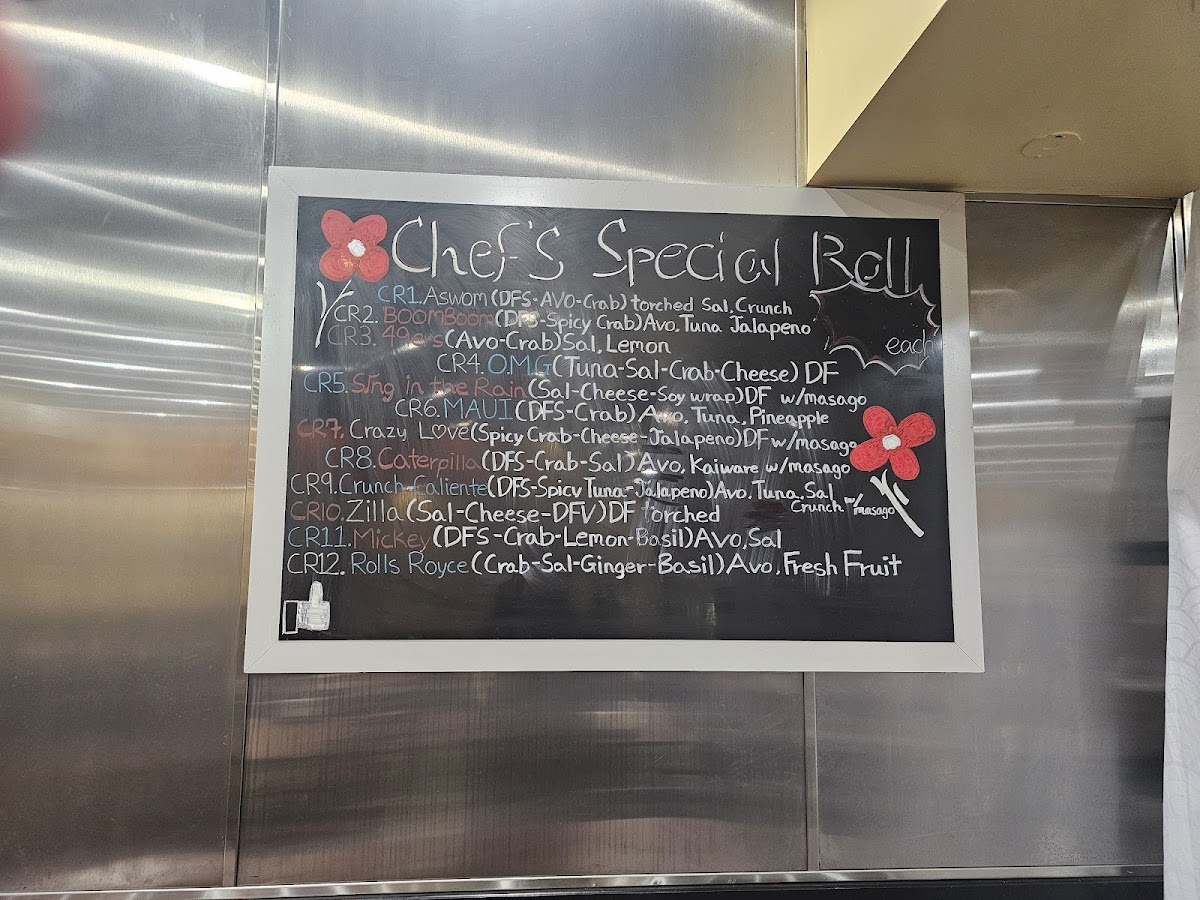 Chef's Special Roll
CR1. Aswom (DFS-AVO-Crab) torched Sal, Crunch
CR2. BoomBoom (DFS-Spicy Crab) Avo. Tuna Jalapeno
each
CR3. 49ers (Avo-Crab) Sal, Lemon
CR4. O.M.G (Tuna-Sal-Crab-Cheese) DF
CR5. Sing in the Rain (Sal-Cheese-Soy wrap) DF w/masago
CR6. MAUI (DFS-Crab) Avo, Tuna, Pineapple
CR7. Crazy L♡ve (Spicy Crab-Cheese-Jalapeno) DF w/masago
CR8. Caterpilla (DFS-Crab-Sal) Avo, Kaiware w/masago
CR9. Crunch-Caliente (DFS-Spicy Tuna-Jalapeno) Avo, Tuna, Sal
Crunch w/masago
CR10. Zilla (Sal-Cheese-DFV) DF torched
CR11. Mickey (DFS-Crab-Lemon-Basil) Avo, Sal
CR12. Rolls Royce (Crab-Sal-Ginger-Basil) Avo, Fresh Fruit